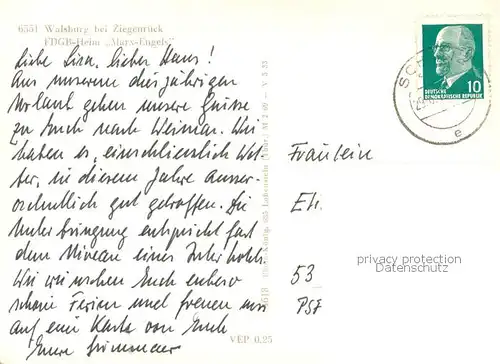 6551 Walsburg bei Ziegenrück
FDGB-Heim „Marx-Engels"
Liebe Lisa, lieber Hans!
Aus unserem diesjährigen
Urlaub gehen unsere Grüsse
zu Euch nach Weimar. Wir
haben es, einschliesslich Wet-
ter, in diesem Jahre ausser-
ordentlich gut getroffen. Die
Unterbringung entspricht fast
dem Niveau eines Interhotels.
Wir wünschen Euch ebenso
schöne Ferien und freuen uns
auf eine Karte von Euch
Eure
VEP 0,25
DEUTSCHE
DEMOKRATISCHE REPUBLIK
10
SC
e
Fräulein
53
PSF
privacy protection
Datenschutz